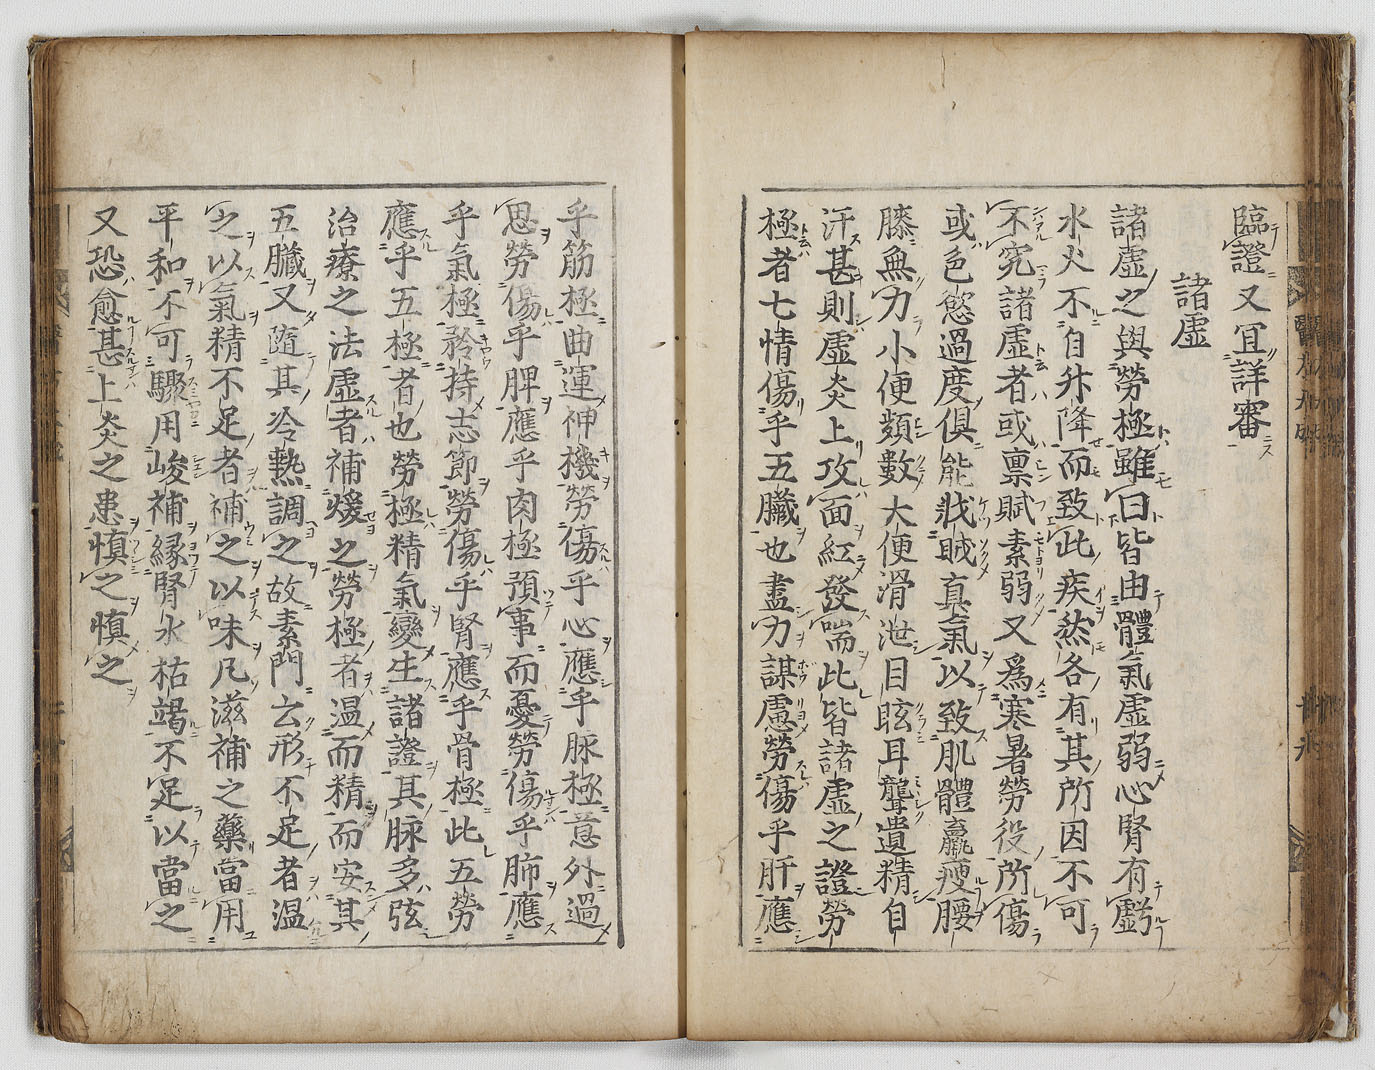 臨證又宜詳審
諸虛
諸虛之與勞極雖曰皆由體氣虛弱心腎有虧
水火不自升降而致此疾然各有其所因不可
不究諸虛者或禀賦素弱又爲寒暑勞役所傷
或色慾過度俱能戕賊真氣以致肌體羸瘦腰
膝無力小便頻數大便滑泄目眩耳聾遺精自
汗甚則虛炎上攻面紅發喘此皆諸虛之證勞
極者七情傷乎五臟也盡力謀慮勞傷乎肝應
乎筋極曲運神機勞傷乎心應乎脉極意外過
思勞傷乎脾應乎肉極預事而憂勞傷乎肺應
乎氣極矜持志節勞傷乎腎應乎骨極此五勞
應乎五極者也勞極精氣變生諸證其脉多弦
治療之法虛者補煖之勞極者温而精而安其
五臟又隨其冷熱調之故素門云形不足者温
之以氣精不足者補之以味凡滋補之藥當用
平和不可驟用峻補緣腎水枯竭不足以當之
又恐愈甚上炎之患慎之慎之